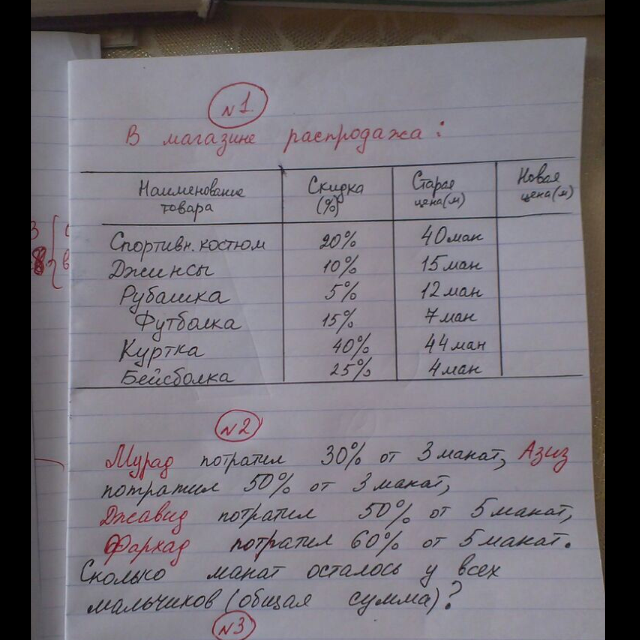 N1
В магазине распродажа:
Наименование товара Скидка (%) Старая цена(м) Новая цена(м)
Спортивн. костюм 20% 40 ман
Джинсы 10% 15 ман
Рубашка 5% 12 ман
Футболка 15% 7 ман
Куртка 40% 44 ман
Бейсболка 25% 4 ман
N2
Мурад потратил 30% от 3 манат, Азиз
потратил 50% от 3 манат,
Джавид потратил 50% от 5 манат,
Фархад потратил 60% от 5 манат.
Сколько манат осталось у всех
мальчиков (общая сумма)?
N3